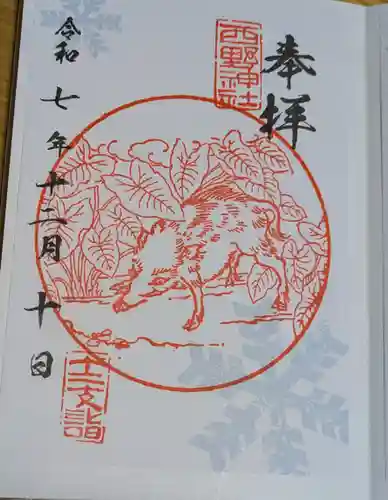 奉拝
西野神社
令和七年十二月十日
十二支詣